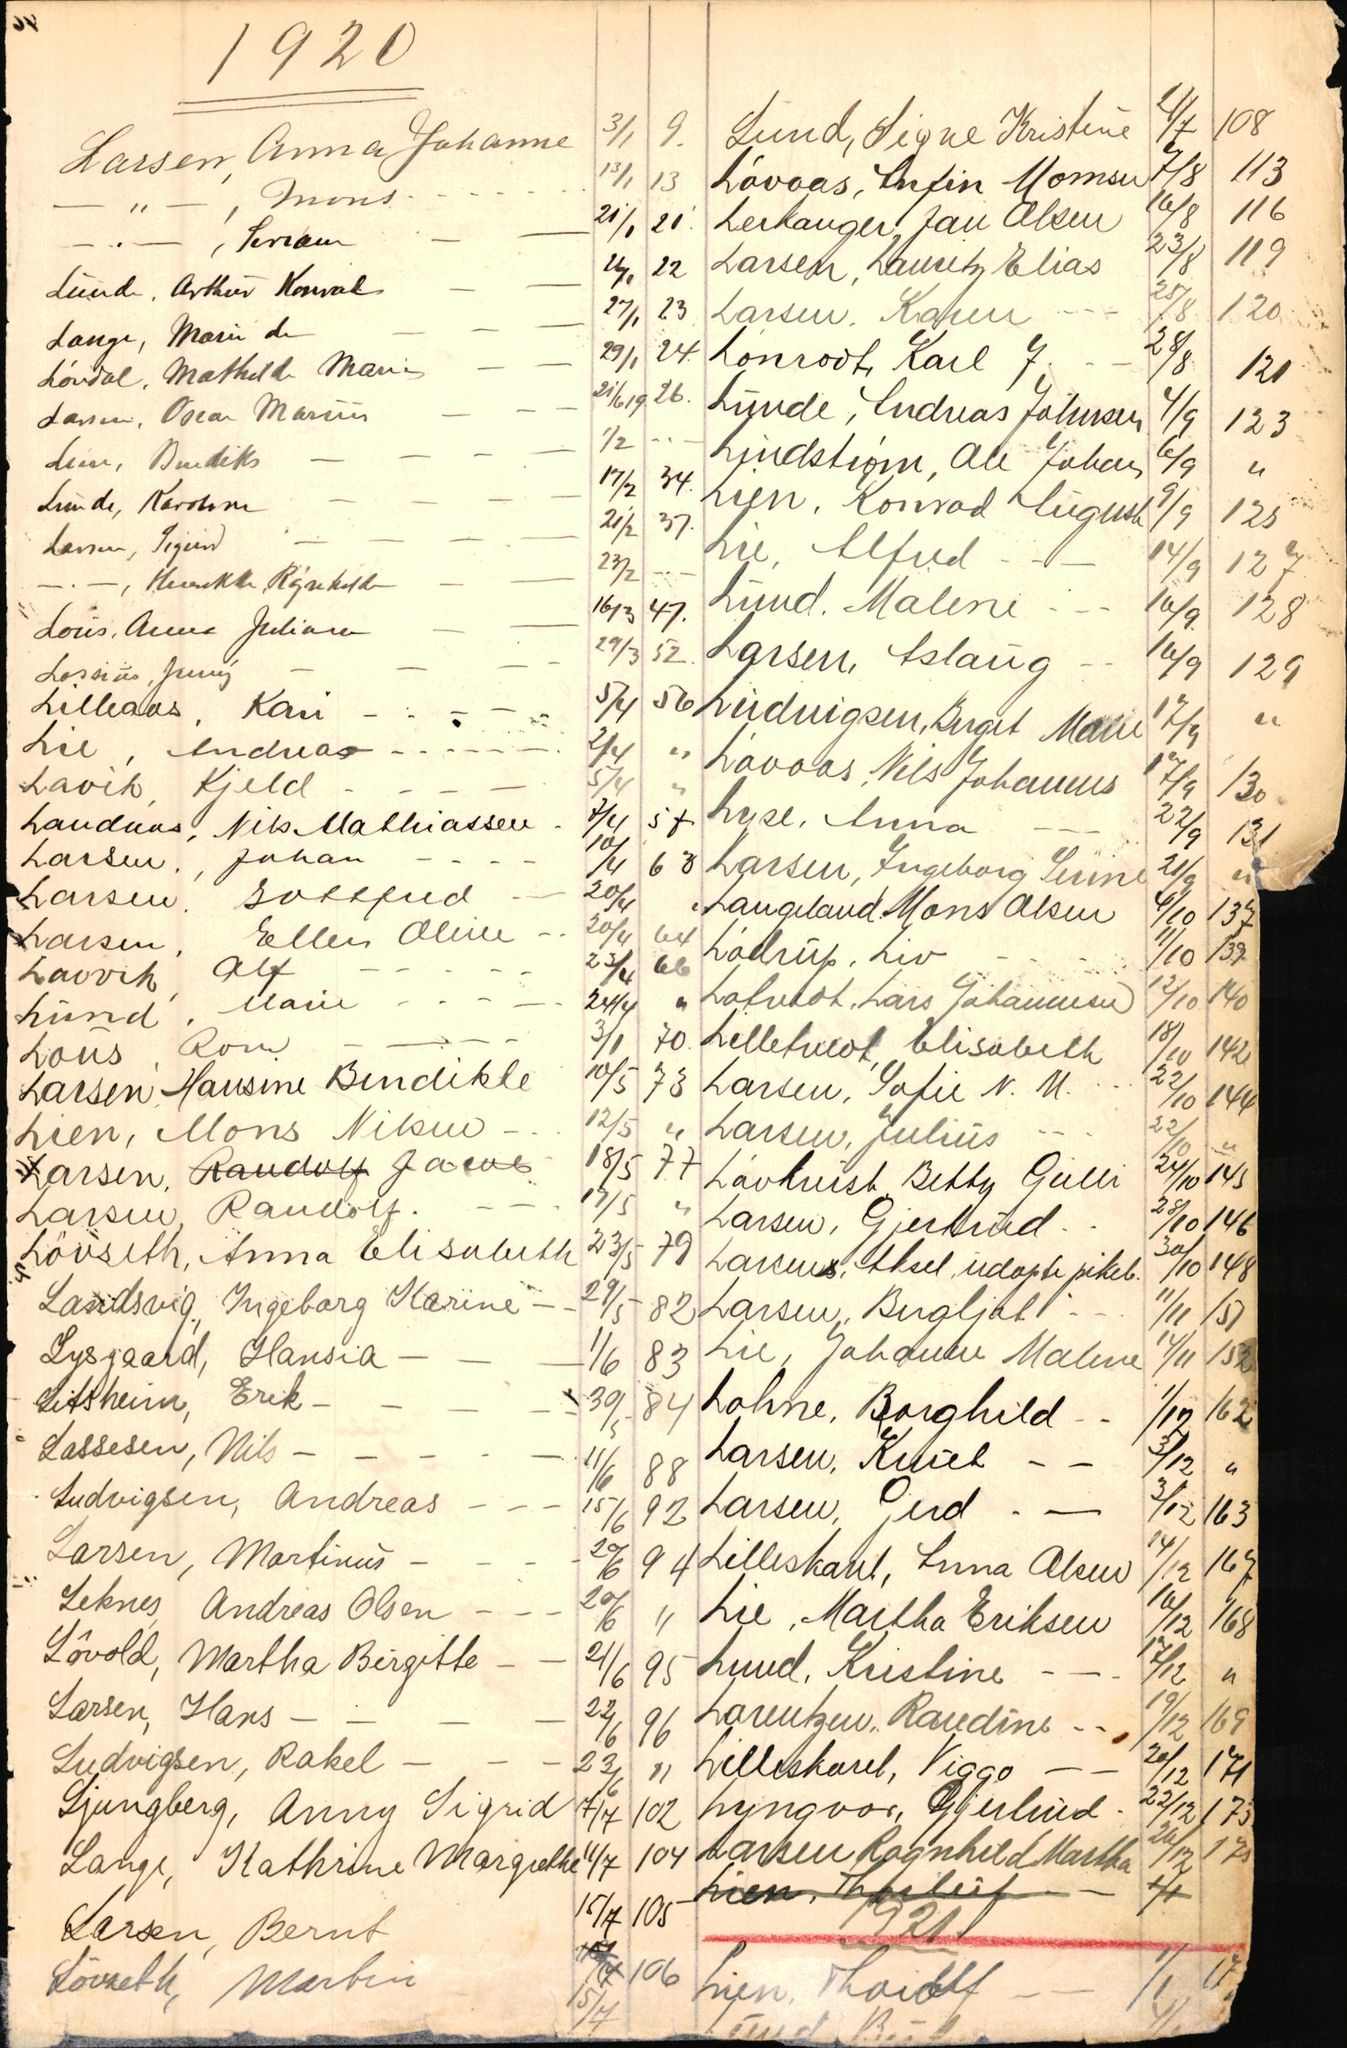 1920
Larsen, Anna Johanne 3/1 9.
— " — , Mons 13/1 13
— . — , 21/1 21
Lunde, Arthur Konrad 22
Lange, Marie de 27/1 23
Lövdal, Mathilde Marie 29/1 24.
Larsen, Oscar Marius 21/6 19 26.
Bendiks 1/2
Lunde, Karoline 17/2 34.
Larsen, Sigurd 21/2 37.
— . — , Henrikke Ragnhilda 23/2
Lous, Anna Juliane 16/3 47.
Lossius, Jenny 29/3 52
Lilleaas, Kari 5/4 56
Lie, Andreas 2/4 "
Lavik, Kjeld 5/4 "
Landaas, Nils Mathiassen 7/4 57
Larsen, Johan 10/4 63
Larsen, Gottfred 20/4 "
Larsen, Ellen Oline 20/4 64
Lavvik, Alf 23/4 66
Lund, Marie 24/4 "
Lous, 3/1 70.
Larsen, Hansine Bendikte 10/5 73
Lien, Mons Nilsen 12/5 "
Larsen, Randolf Jacob 18/5 77
Larsen, Randolf. 17/5 "
Lövseth, Anna Elisabeth 23/5 79
Landsvig, Ingeborg Karine 29/5 82
Lysgaard, Hansia 1/6 83
Litsheim, Erik 30/5 84
Lassesen, Nils 11/6 88
Ludvigsen, Andreas 15/6 92
Larsen, Martinus 20/6 94
Leknes, Andreas Olsen 20/6 "
Lövold, Martha Birgitte 21/6 95
Larsen, Hans 22/6 96
Ludvigsen, Rakel 23/6 "
Ljungberg, Anny Sigrid 7/7 102
Lange, Kathrine Margrethe 11/7 104
Larsen, Bernt 15/7 105
Lövseth, Martin 15/7 106
Lund, Signe Kristine 108
Lövaas, Enfin Monsen 7/8 113
Lerhanger, Jan Olsen 16/8 116
Larsen, Lauritz Elias 23/8 119
Larsen, Karen 25/8 120
Lönrodt, Karl J. 28/8 121
Lunde, Andreas Johnsen 4/9 123
Lindström, Ole Johan 6/9 "
Lien, Konrad August 9/9 125
Lie, Alfred 14/9 127
Lund, Malene 16/9 128
Larsen, Aslaug 16/9 129
Ludvigsen, Birgit Marie 17/9 "
Lövaas, Nils Johannes 17/9 130
Lyse, Anna 22/9 131
Larsen, Ingeborg Serine 21/9 "
Langeland, Mons Olsen 6/10 137
Lödrup, Liv 11/10 139
Lofvedt, Lars Johannesen 12/10 140
Lilletvedt, Elisabeth 18/10 142
Larsen, Sofie N. M. 22/10 144
Larsen, Julius 22/10 "
Lövkvist, Betty Gulli 24/10 145
Larsen, Gjertrud 28/10 146
Larsens, Aksel, udøpte pikeb. 30/10 148
Larsen, Bergljot 11/11 151
Lie, Johanne Malene 14/11 152
Lohne, Borghild 1/12 162
Larsen, Knut 3/12 "
Larsen, Gerd 3/12 163
Lilleskaret, Anna Olsen 14/12 167
Lie, Martha Eriksen 16/12 168
Lund, Kristine 17/12 "
Lorentzen, Randine 19/12 169
Lilleskaret, Viggo 20/12 171
Lyngvor, Gjertrud 22/12 173
Larsen Ragnhild Martha 26/12
Lien, Thorleif 1/1
1921
Lien, Thoralf 1/1 17